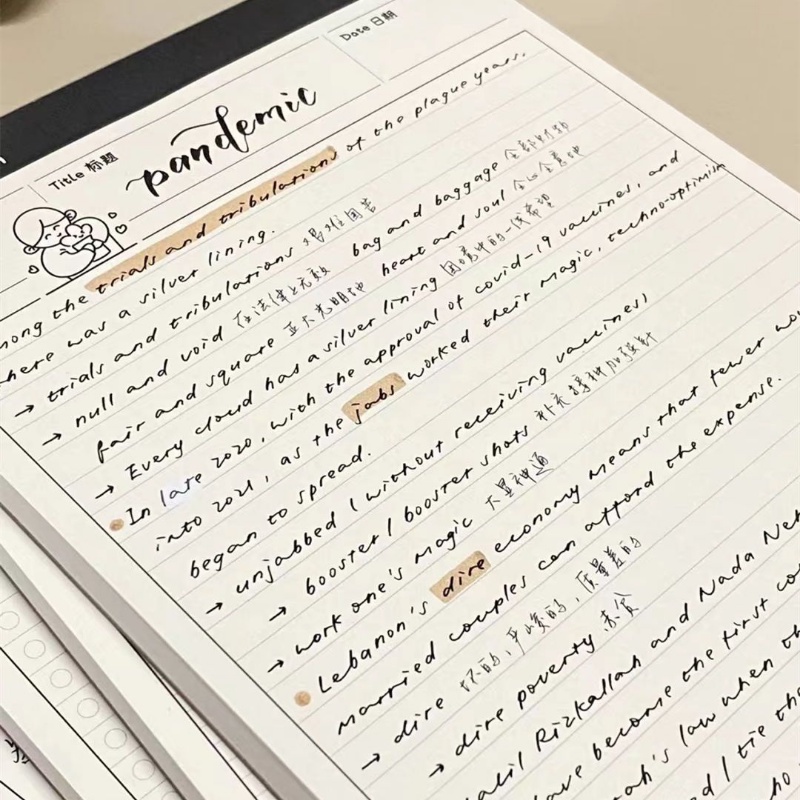 Date 日期
Title 标题
pandemic
mong the trials and tribulations of the plague years,
here was a silver lining.
→ trials and tribulations 艰难困苦
→ null and void 在法律上无效 bag and baggage 全部财物
fair and square 正大光明地 heart and soul 全心全意地
→ Every cloud has a silver lining 困境中的一线希望
In late 2020, with the approval of covid-19 vaccines, and
into 2021, as the jabs worked their magic, techno-optimism
began to spread.
→ unjabbed / without receiving vaccines
→ booster / booster shots 补充接种加强针
→ work one's magic 大显神通
Lebanon's dire economy means that fewer
married couples can afford the expense.
→ dire 坏的,严峻的,质量差的
→ dire poverty 赤贫
Rizkallah and Nada
have become the first
law when
I tie